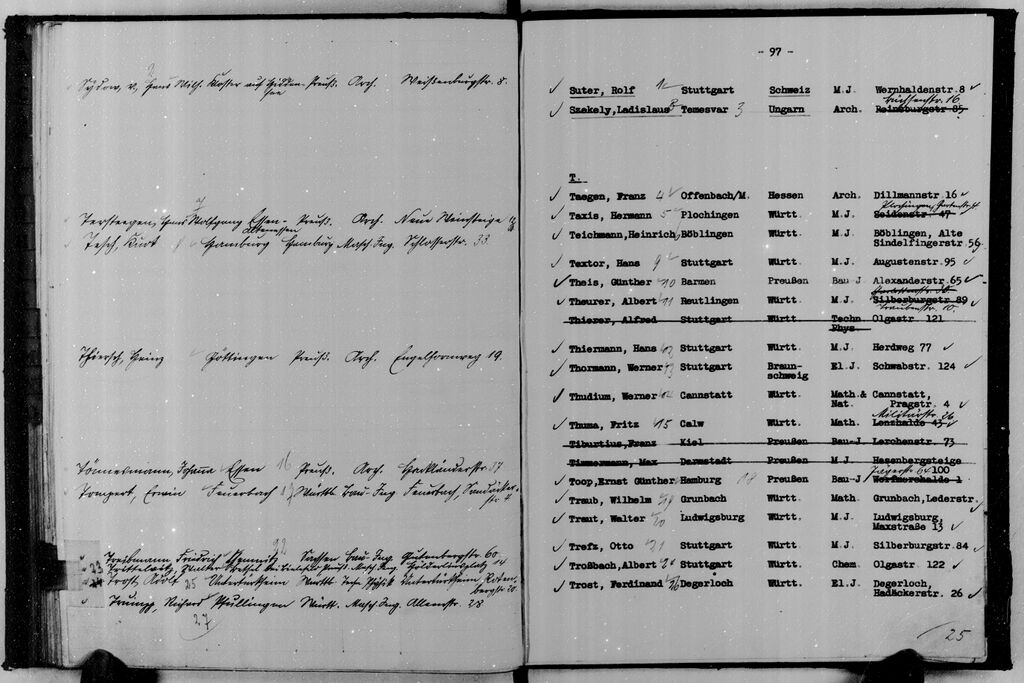 Sydow, v, Hans Wilh. Kloster auf Hidden- Preuß. Arch. Weißenburgstr. 8.
see
7
Tersteegen, Hans Wolfgang Essen- Preuß. Arch. Neue Weinsteige
Altenessen
Tesch, Kurt Hamburg Hamburg Masch. Ing. Schlosserstr. 33.
Thiersch, Heinz Göttingen Preuß. Arch. Engelhornweg 19.
Tönnesmann, Johanna Essen 16 Preuß. Arch. Hackländerstr. 37
Trumpert, Erwin Feuerbach Württb. Bau-Ing. Feuerbach,
22
Friedrich Chemnitz Sachsen Bau-Ing. Gutenbergstr. 60
23 Preuß. Masch. Ing. Hölderlinplatz
24 Trost, Adolf 25 Untertürkheim Württb. Untertürkheim, Roten-
bergstr. 20.
Trumpp, Richard Pfullingen Württ. Masch. Ing. Alleenstr. 28
27
- 97 -
Suter, Rolf Stuttgart Schweiz M.J. Wernhaldenstr.8
Büchsenstr. 16
Szekely,Ladislaus Temesvar 3 Ungarn Arch. Reinsburgstr 85
T.
Taegen, Franz 4 Offenbach/M. Hessen Arch. Dillmannstr.16
Plochingen,
Taxis, Hermann 5 Plochingen Württ. M.J. Seidenstr 47
Teichmann,Heinrich Böblingen Württ. M.J. Böblingen, Alte
Sindelfingerstr 56
Textor, Hans 9 Stuttgart Württ. M.J. Augustenstr.95
Theis, Günther 10 Barmen Preußen Bau-J Alexanderstr.65
Theurer, Albert 11 Reutlingen Württ. M.J. Silberburgstr 89
Traubenstr. 10.
Thierer, Alfred Stuttgart Württ. Techn. Olgastr 121
Phys.
Thiermann, Hans Stuttgart Württ. M.J. Herdweg 77
Thormann, Werner 13 Stuttgart Braun- El.J. Schwabstr. 124
schweig
Thudium, Werner Cannstatt Württ. Math.& Cannstatt,
Nat. Pragstr. 4
Militärstr. 26
Thuma, Fritz 15 Calw Württ. Math. Lenzhalde 43
Tiburtius,Franz Kiel Preußen Bau-J Lerchenstr. 73
Timmermann, Max Darmstadt Preußen M.J Hasenbergsteige
Jägerstr. 64 100
Toop,Ernst Günther Hamburg 18 Preußen Bau-J Werfmershalde 1
Traub, Wilhelm 19 Grunbach Württ. Math Grunbach,Lederstr.
Traut, Walter 20 Ludwigsburg Württ. M.J. Ludwigsburg,
Maxstraße 13
Trefz, Otto 21 Stuttgart Württ. M.J. Silberburgstr.84
Troßbach,Albert Stuttgart Württ. Chem. Olgastr 122
Trost, Ferdinand 26 Degerloch Württ. El.J. Degerloch,
Hadäckerstr. 26
25